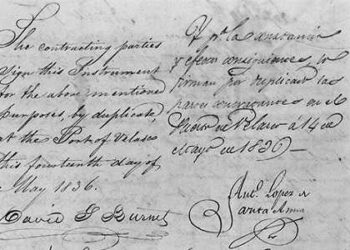 The contracting parties
sign this Instrument
for the above mentioned
purposes, by duplicate,
at the Port of Velasco
this fourteenth day of
May 1836.
David G Burnet
Y pr. la
y efectos consiguientes, lo
firman por duplicado las
partes en el
Puerto de Velasco á 14 de
Mayo de 1836
Anto. Lopez de
Santa Anna